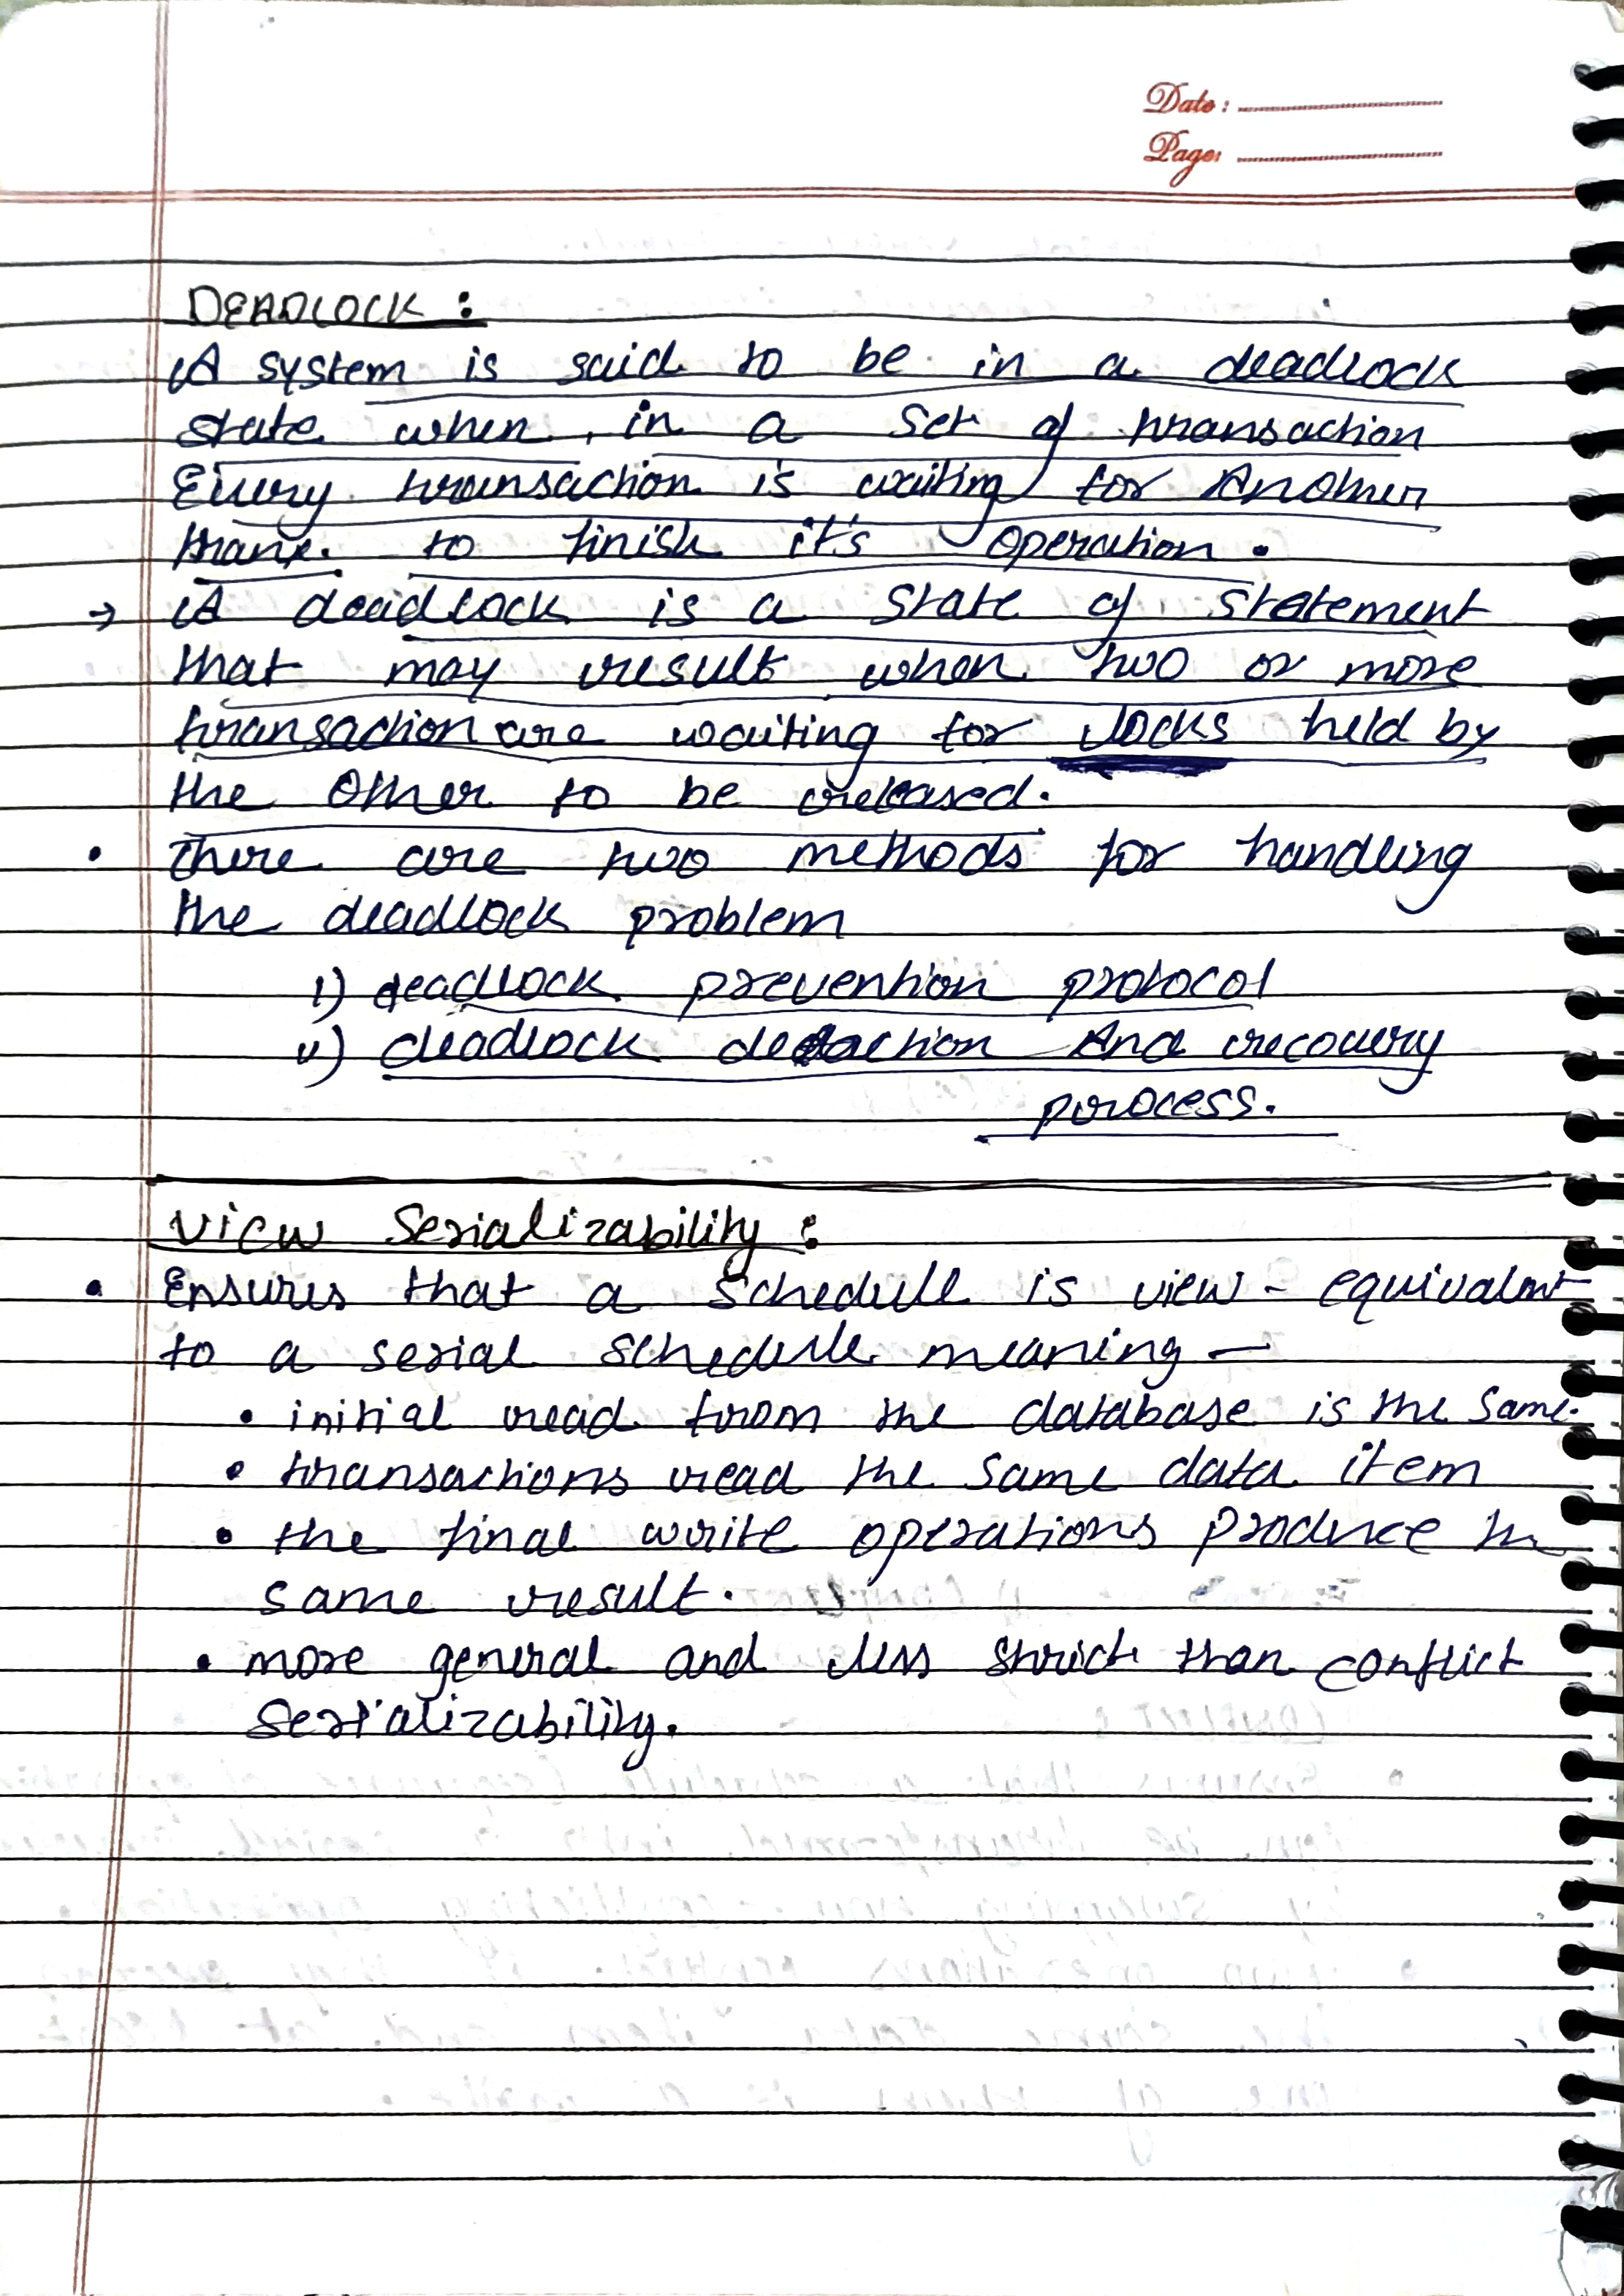 Date:
Page:
DEADLOCK :
A system is said to be in a deadlock
state when, in a set of transaction
Every transaction is waiting for Another
to finish it's operation.
→ A deadlock is a state of statement
that may result when two or more
transaction are waiting for locks held by
the other to be released.
• There are two methods for handling
the deadlock problem
i) deadlock prevention protocol
ii) deadlock detection And recovery
process.
View Serializability :
• Ensures that a schedule is view - equivalent
to a serial schedule meaning —
• initial read from the database is the same.
• transactions read the same data item
• the final write operations produce the
same result.
• more general and less strict than conflict
serializability.